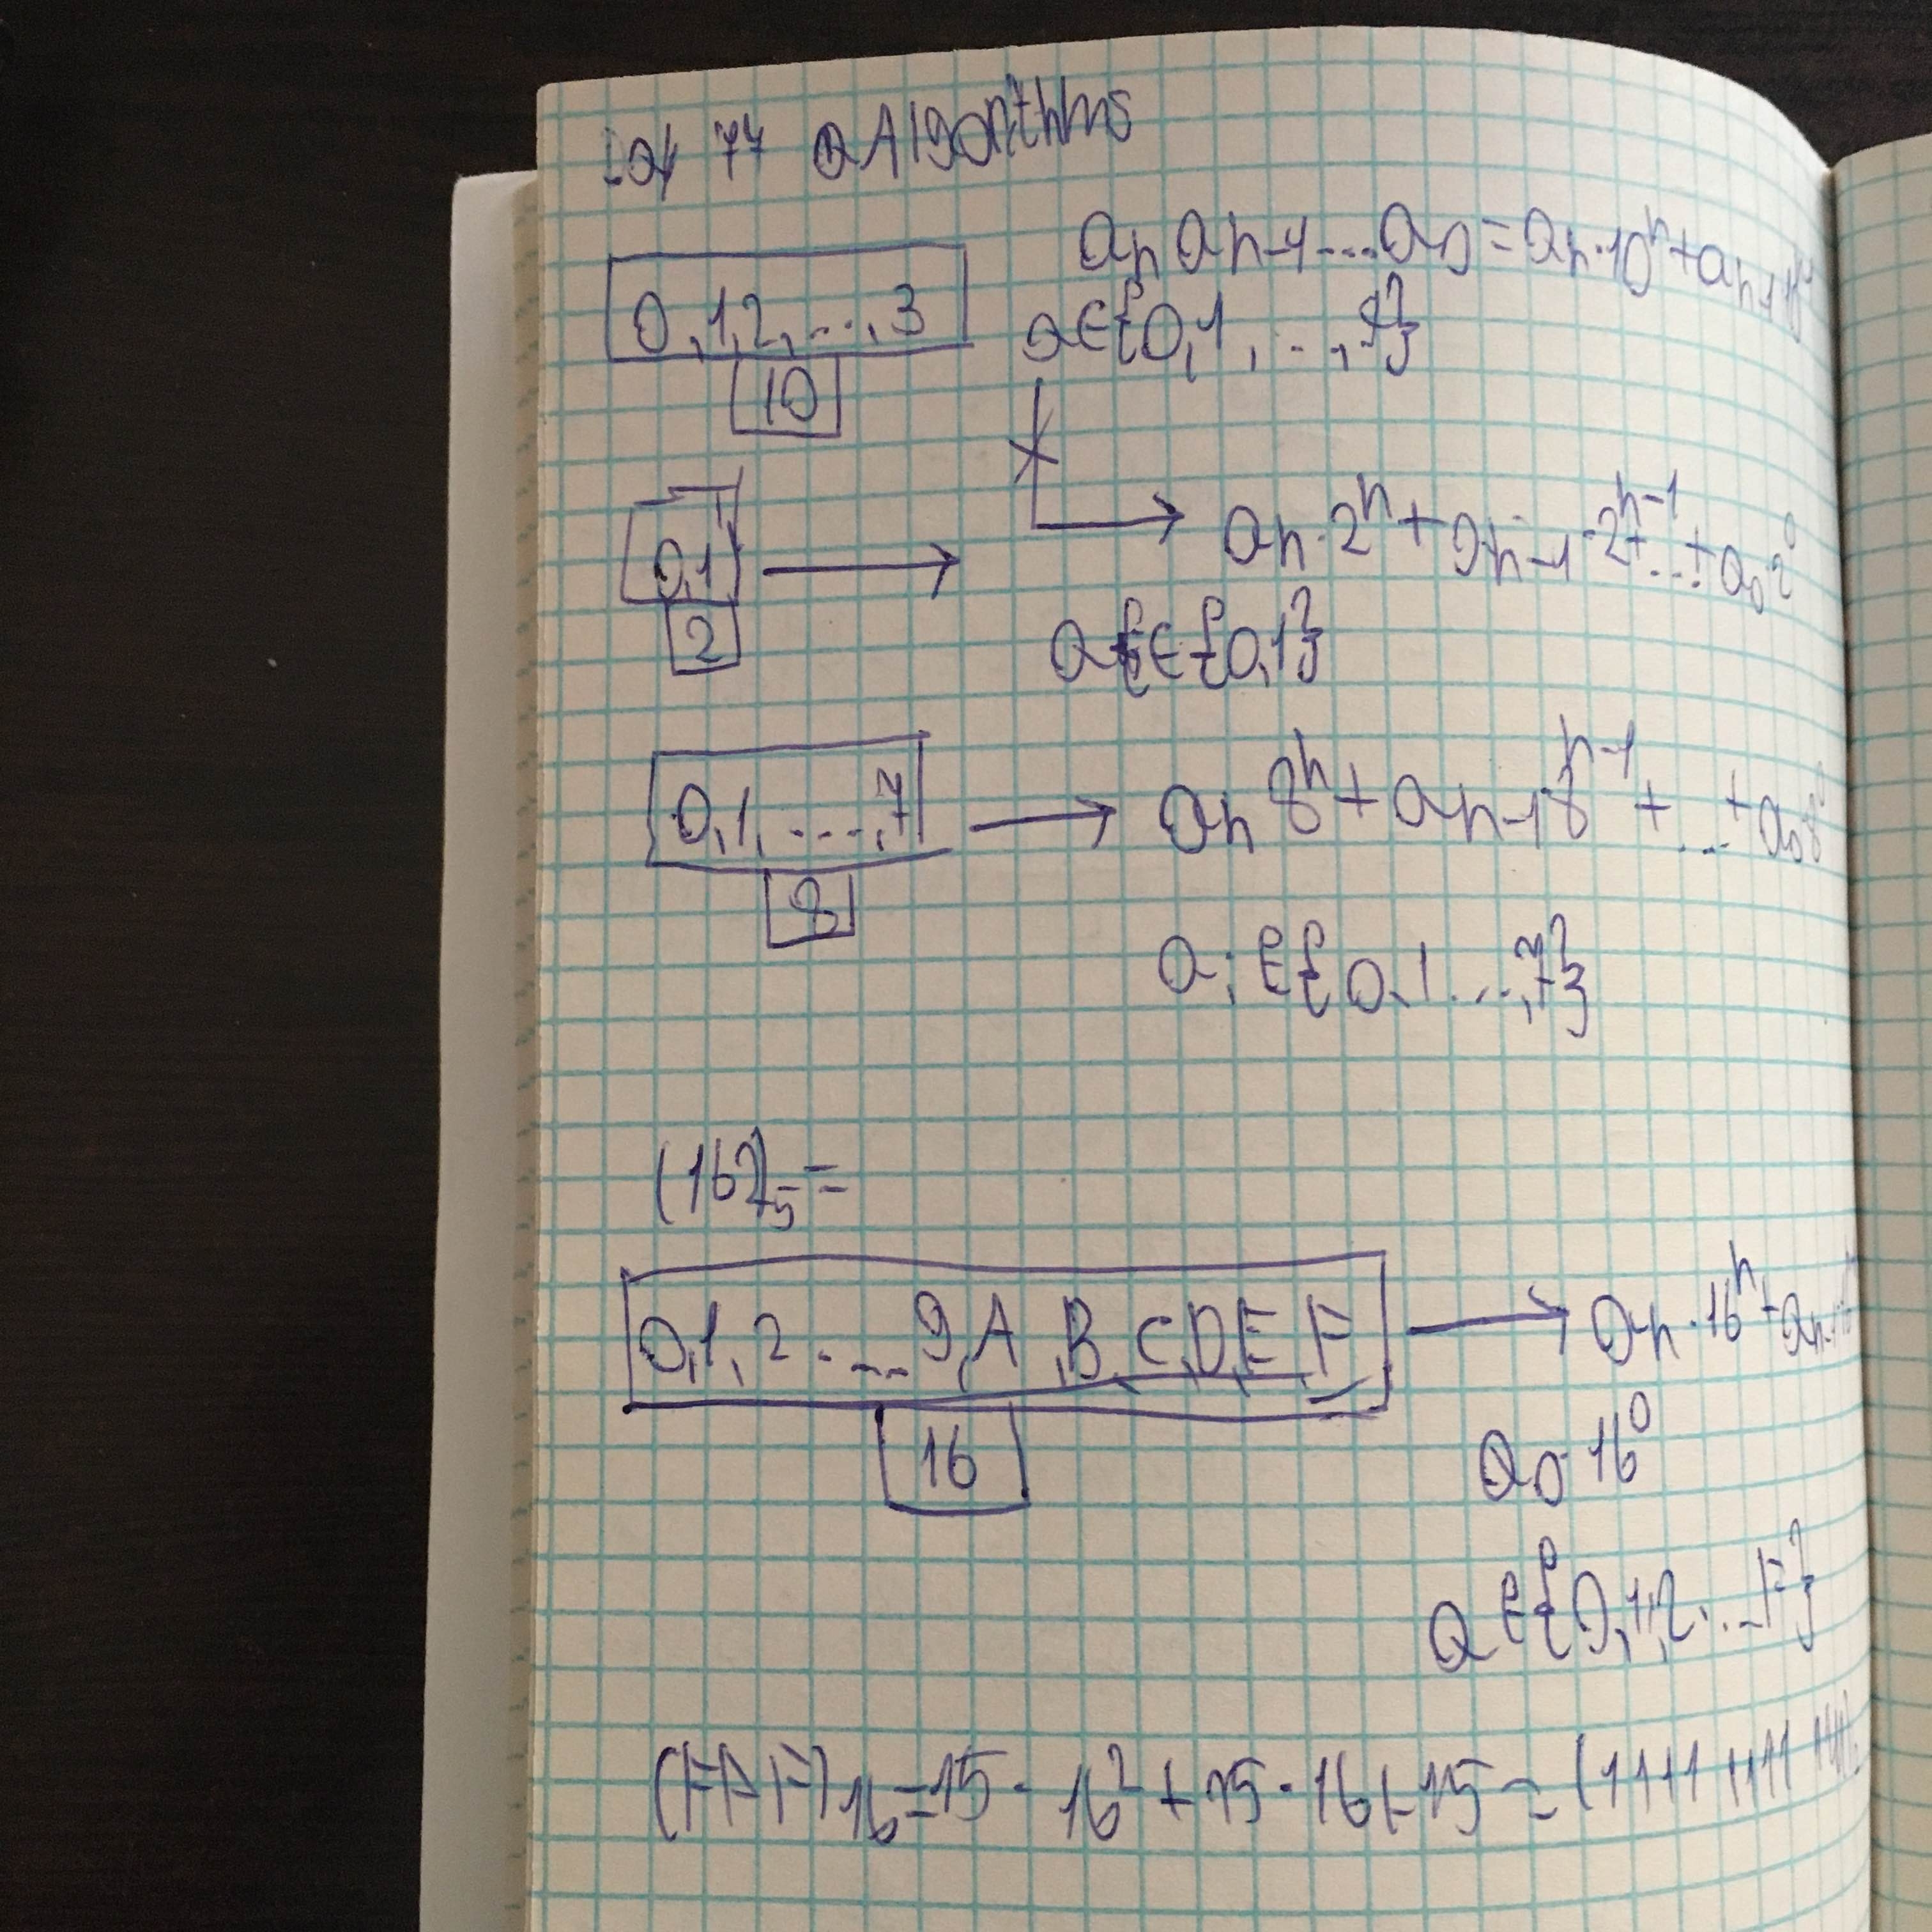 Algorithms
aₙ aₙ₋₁ ... a₀ = aₙ·10ⁿ + aₙ₋₁
0,1,2, ..., 3
a ∈ {0,1, ..., 9}
10
0,1 → aₙ·2ⁿ + aₙ₋₁·2ⁿ⁻¹ + ... + a₀2⁰
2
a ∈ {0,1}
0,1, ..., 7 → aₙ 8ⁿ + aₙ₋₁ 8ⁿ⁻¹ + ... + a₀8⁰
8
aᵢ ∈ {0,1 ..., 7}
(162)₅ =
0,1,2 ... 9,A,B,C,D,E,F → aₙ·16ⁿ + aₙ₋₁
16
a₀·16⁰
a ∈ {0,1,2 ... F}
(FFF)₁₆ = 15·16² + 15·16 + 15 = (1111 1111 1111)₂